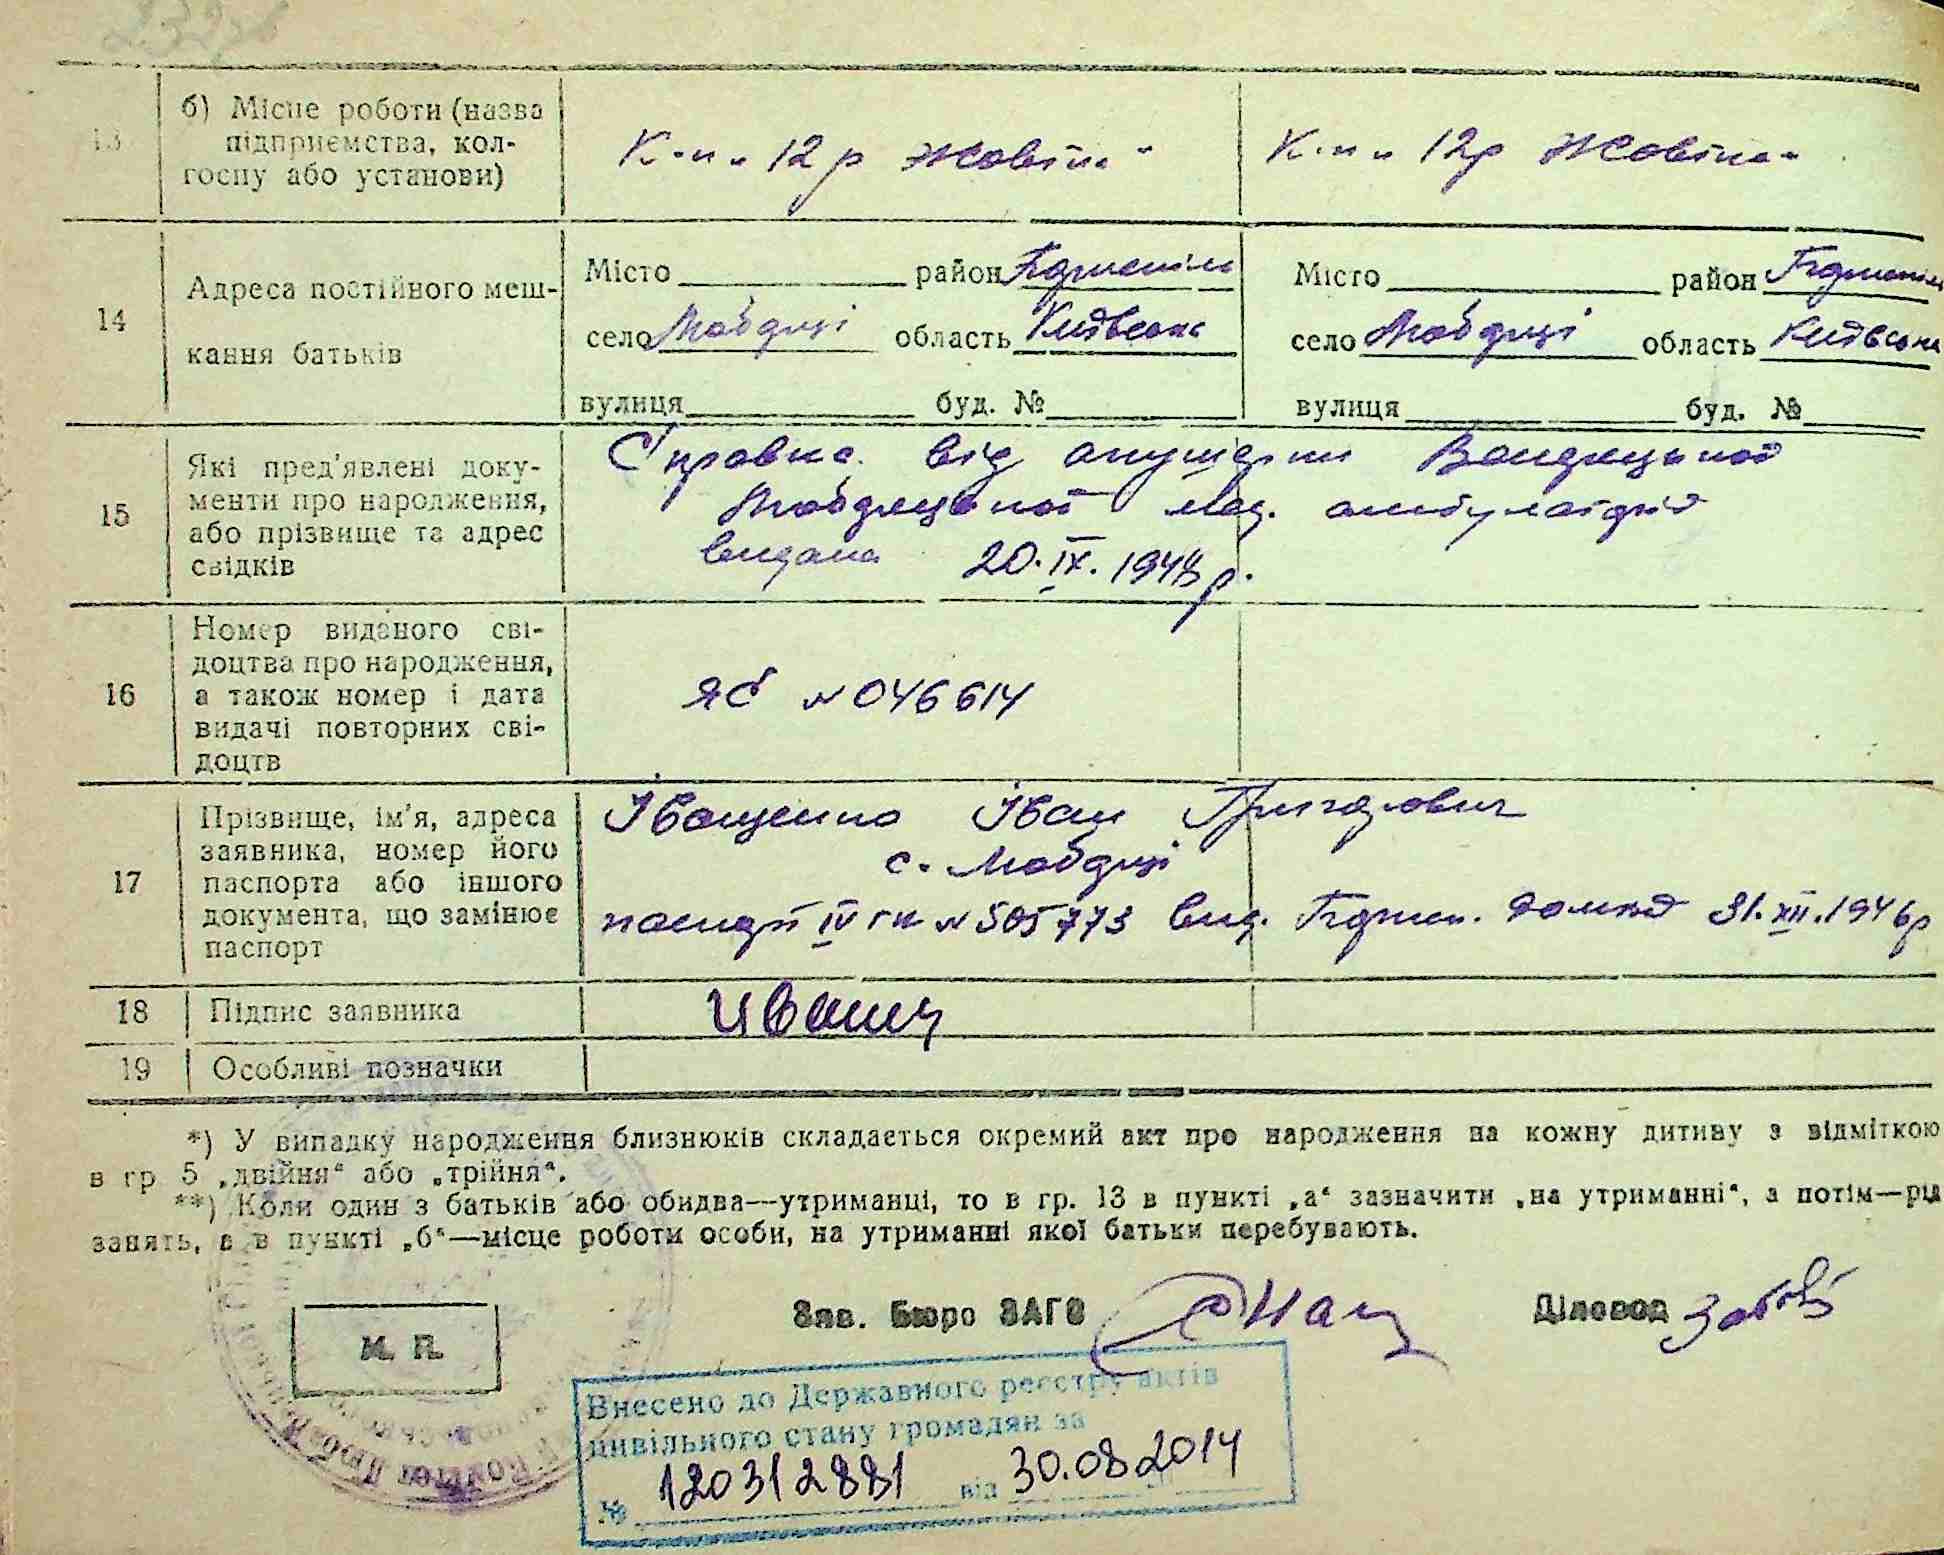 13 б) Місце роботи (назва
підприємства, кол-
госпу або установи)
К-п „12 р Жовтня" К-п „12 р Жовтня"
14 Адреса постійного меш-
кання батьків
Місто район Бориспіль Місто район Бориспіль
село область Київська село область Київська
вулиця буд. № вулиця буд. №
15 Які пред'явлені доку-
менти про народження,
або прізвище та адрес
свідків
Справка від акушерки
мед. амбулаторії
видана 20.IX.1948 р.
16 Номер виданого сві-
доцтва про народження,
а також номер і дата
видачі повторних сві-
доцтв
ЯБ № 046614
17 Прізвище, ім'я, адреса
заявника, номер його
паспорта або іншого
документа, що замінює
паспорт
Іващенко Іван Григорович
с.
паспорт IV № 505773 вид. 31.XII.1946 р
18 Підпис заявника
Иващ
19 Особливі позначки
*) У випадку народження близнюків складається окремий акт про народження на кожну дитину з відміткою
в гр 5 „двійня“ або „трійня“.
**) Коли один з батьків або обидва—утриманці, то в гр. 13 в пункті „а“ зазначити „на утриманні“, а потім—рід
занять, а в пункті „б“—місце роботи особи, на утриманні якої батьки перебувають.
Зав. Бюро ЗАГС Діловод
М. П.
Внесено до Державного реєстру актів
цивільного стану громадян за
№ 120312881 від 30.08.2014